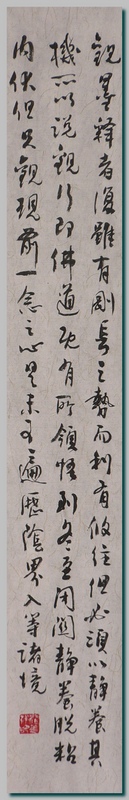 觀墨釋者復雖有剛長之勢而利有攸往但必須以靜養其
機所以說觀行即佛道既有所領悟到冬至用關靜養脫粘
內伏但只觀現前一念之心是未可遍歷陰界入等諸境